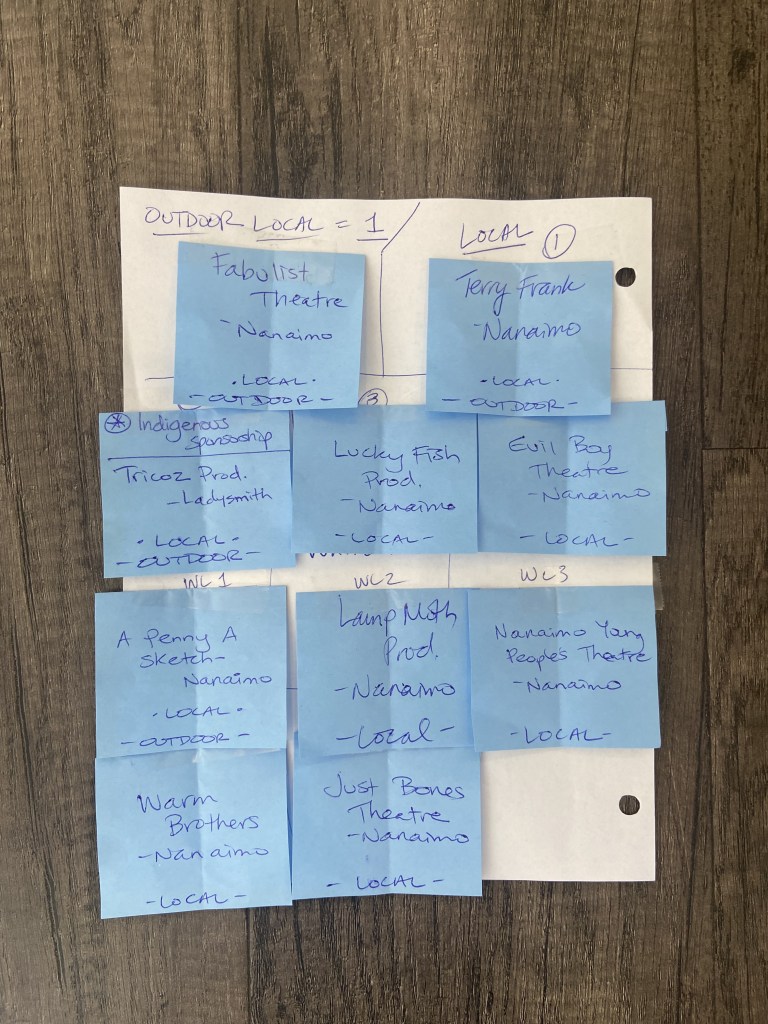 OUTDOOR LOCAL = 1
LOCAL ①
Fabulist
Theatre
- Nanaimo
· LOCAL ·
- OUTDOOR -
Terry Frank
- Nanaimo
· LOCAL ·
- OUTDOOR -
③
Indigenous
Sponsorship
Tricoz Prod.
- Ladysmith
· LOCAL ·
- OUTDOOR -
Lucky Fish
Prod.
- Nanaimo
- LOCAL -
Evil Boy
Theatre
- Nanaimo
- LOCAL -
WL1
WL2
WL3
A Penny A
Sketch -
Nanaimo
· LOCAL ·
- OUTDOOR -
Lamp Moth
Prod.
- Nanaimo
- Local -
Nanaimo Young
People's Theatre
- Nanaimo
- LOCAL -
Warm
Brothers
- Nanaimo
- LOCAL -
Just Bones
Theatre
- Nanaimo
- LOCAL -